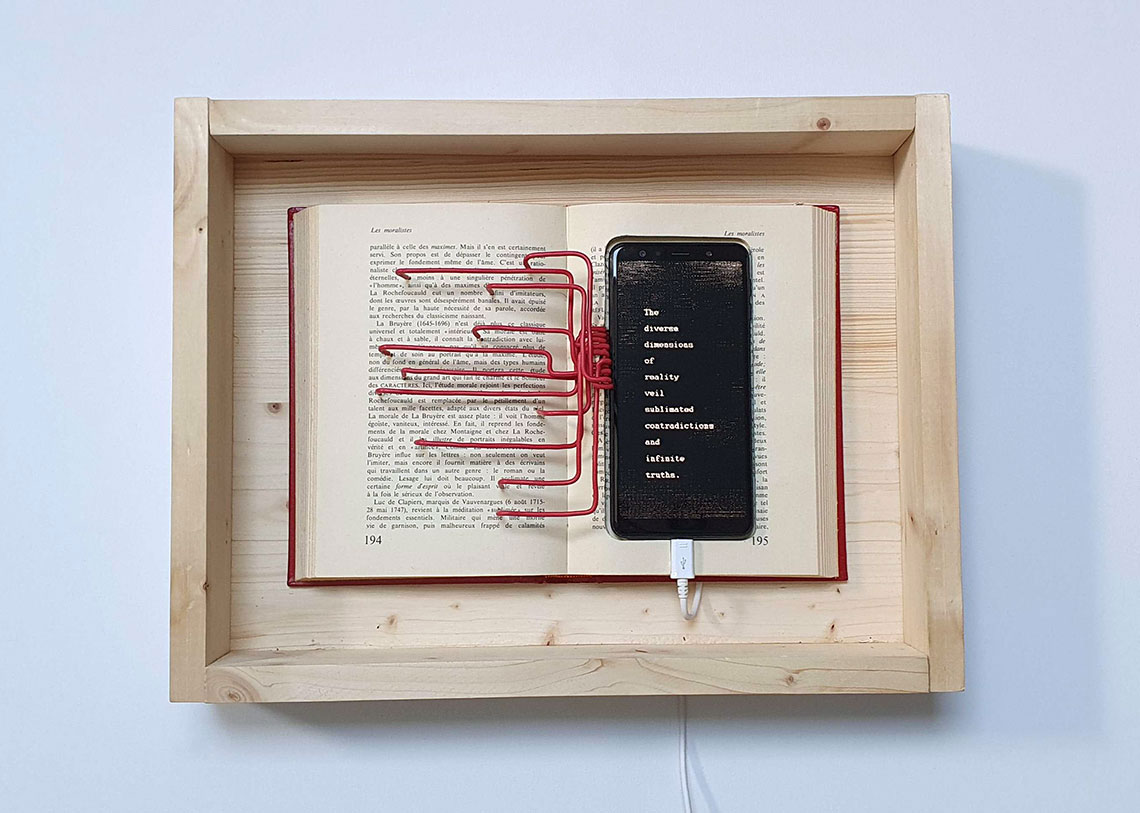 Les moralistes
parallèle à celle des maximes. Mais il s'en est certainement
servi. Son propos est de dépasser le contingent
exprimer le fondement même de l'âme. C'est
naliste
éternelles, moins à une singulière pénétration de
«l'homme», ainsi qu'à des maximes
La Rochefoucauld eut un nombre d'imitateurs,
dont les œuvres sont désespérément banales. Il avait épuisé
le genre, par la haute nécessité de sa parole, accordée
aux recherches du classicisme naissant.
La Bruyère (1645-1696) n'est déjà plus ce classique
universel et totalement «intérieur». Sa morale est bâtie
à chaux et à sable, il connaît la contradiction avec lui-
de soin au portrait qu'à la maxime.
non du fond en général de l'âme, mais des types humains
portera cette étude
aux dimensions du grand art qui fait le charme et le bonheur
des CARACTÈRES. Ici, l'étude morale rejoint les perfections
Rochefoucauld est remplacée par le pétillement d'un
talent aux mille facettes, adapté aux divers états du
La morale de La Bruyère est assez plate : il voit l'homme
égoïste, vaniteux, intéressé. En fait, il reprend les fonde-
ments de la morale chez Montaigne et chez La Roche-
foucauld et il illustre de portraits inégalables en
vérité et en
Bruyère influe sur les lettres : non seulement on veut
l'imiter, mais encore il fournit matière à des écrivains
qui travaillent dans un autre genre : le roman ou la
comédie. Lesage lui doit beaucoup. Il
certaine forme d'esprit où le plaisant voile et révèle
à la fois le sérieux de l'observation.
Luc de Clapiers, marquis de Vauvenargues (6 août 1715-
28 mai 1747), revient à la méditation «sublimée» sur les
fondements essentiels. Militaire qui mène une morne
vie de garnison, puis malheureux frappé de calamités
194
Les moralistes
The
diverse
dimensions
of
reality
veil
sublimated
contradictions
and
infinite
truths.
195